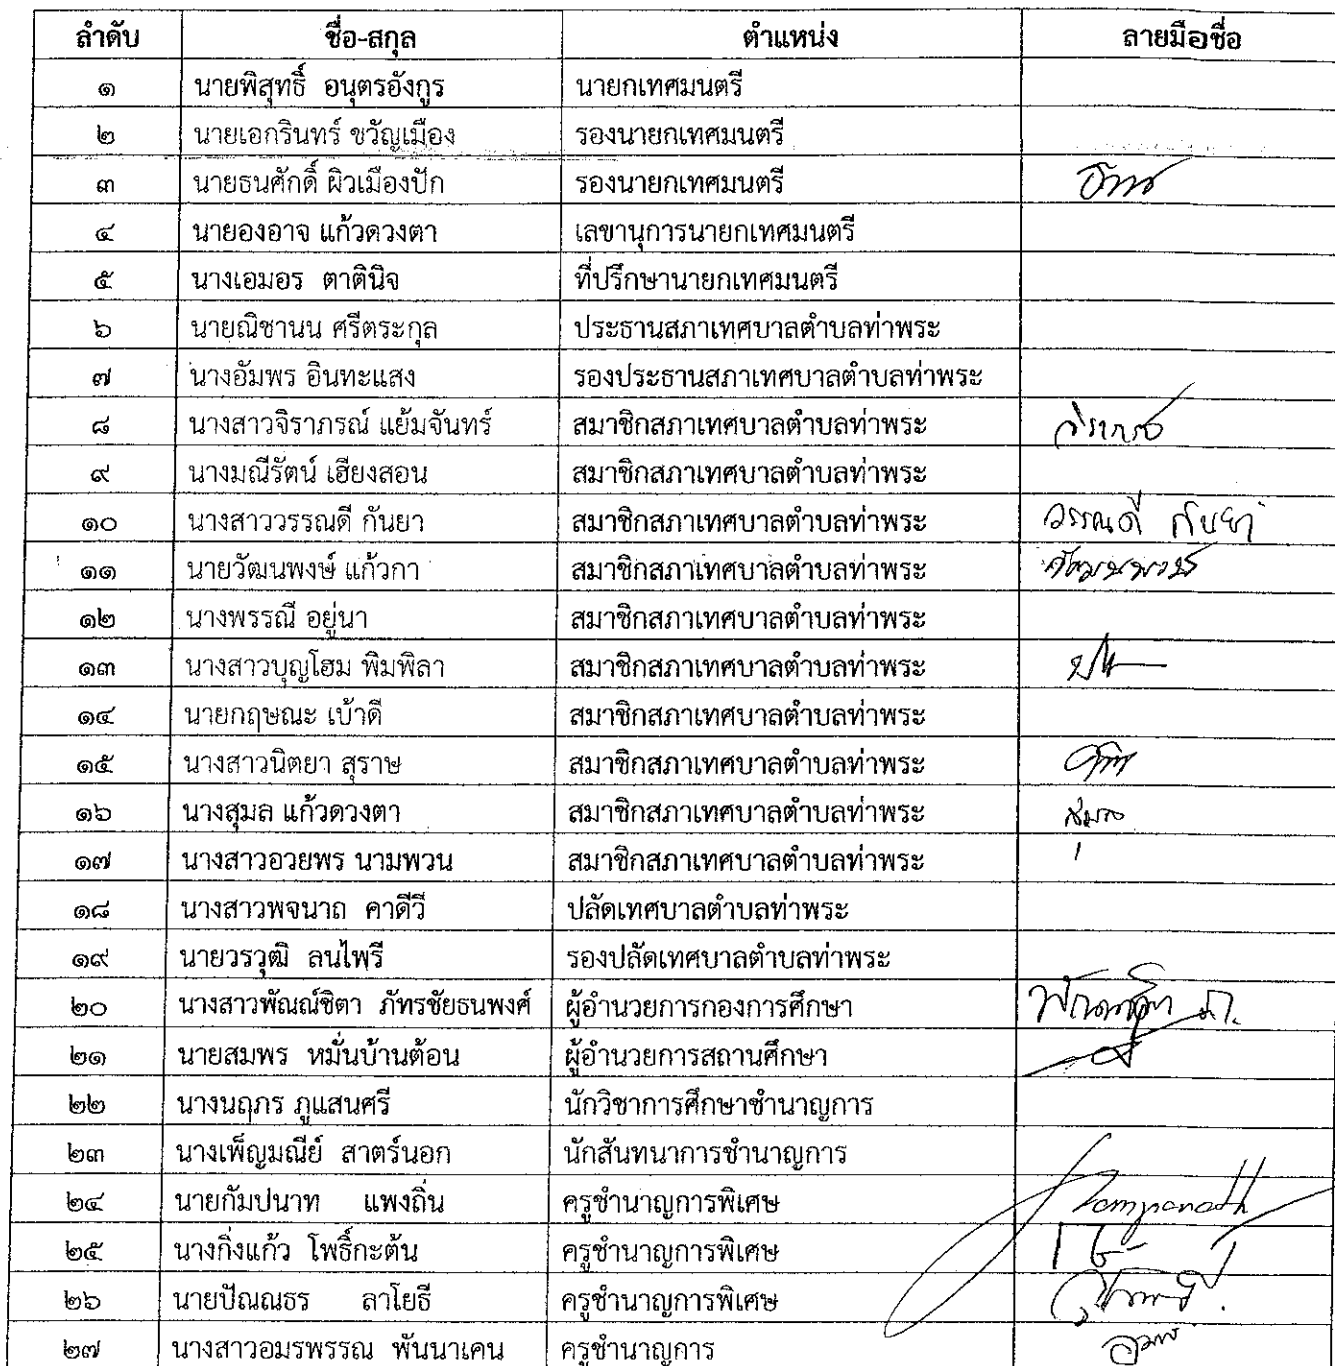 ลำดับ ชื่อ-สกุล ตำแหน่ง ลายมือชื่อ
๑ นายพิสุทธิ์ อนุตรอังกูร นายกเทศมนตรี
๒ นายเอกรินทร์ ขวัญเมือง รองนายกเทศมนตรี
๓ นายธนศักดิ์ ผิวเมืองปัก รองนายกเทศมนตรี
๔ นายองอาจ แก้วดวงตา เลขานุการนายกเทศมนตรี
๕ นางเอมอร ตาตินิจ ที่ปรึกษานายกเทศมนตรี
๖ นายณิชานน ศรีตระกูล ประธานสภาเทศบาลตำบลท่าพระ
๗ นางอัมพร อินทะแสง รองประธานสภาเทศบาลตำบลท่าพระ
๘ นางสาวจิราภรณ์ แย้มจันทร์ สมาชิกสภาเทศบาลตำบลท่าพระ จิราภรณ์
๙ นางมณีรัตน์ เฮียงสอน สมาชิกสภาเทศบาลตำบลท่าพระ
๑๐ นางสาววรรณดี กันยา สมาชิกสภาเทศบาลตำบลท่าพระ วรรณดี กันยา
๑๑ นายวัฒนพงษ์ แก้วกา สมาชิกสภาเทศบาลตำบลท่าพระ วัฒนพงษ์
๑๒ นางพรรณี อยู่นา สมาชิกสภาเทศบาลตำบลท่าพระ
๑๓ นางสาวบุญโฮม พิมพิลา สมาชิกสภาเทศบาลตำบลท่าพระ
๑๔ นายกฤษณะ เบ้าดี สมาชิกสภาเทศบาลตำบลท่าพระ
๑๕ นางสาวนิตยา สุราษ สมาชิกสภาเทศบาลตำบลท่าพระ
๑๖ นางสุมล แก้วดวงตา สมาชิกสภาเทศบาลตำบลท่าพระ สุมล
๑๗ นางสาวอวยพร นามพวน สมาชิกสภาเทศบาลตำบลท่าพระ
๑๘ นางสาวพจนาถ คาดีวี ปลัดเทศบาลตำบลท่าพระ
๑๙ นายวรวุฒิ ลนไพรี รองปลัดเทศบาลตำบลท่าพระ
๒๐ นางสาวพัณณ์ชิตา ภัทรชัยธนพงศ์ ผู้อำนวยการกองการศึกษา
๒๑ นายสมพร หมั่นบ้านต้อน ผู้อำนวยการสถานศึกษา
๒๒ นางนฤภร ภูแสนศรี นักวิชาการศึกษาชำนาญการ
๒๓ นางเพ็ญมณีย์ สาตร์นอก นักสันทนาการชำนาญการ
๒๔ นายกัมปนาท แพงถิ่น ครูชำนาญการพิเศษ Kampanath
๒๕ นางกิ่งแก้ว โพธิ์กะต้น ครูชำนาญการพิเศษ
๒๖ นายปัณณธร ลาโยธี ครูชำนาญการพิเศษ
๒๗ นางสาวอมรพรรณ พันนาเคน ครูชำนาญการ